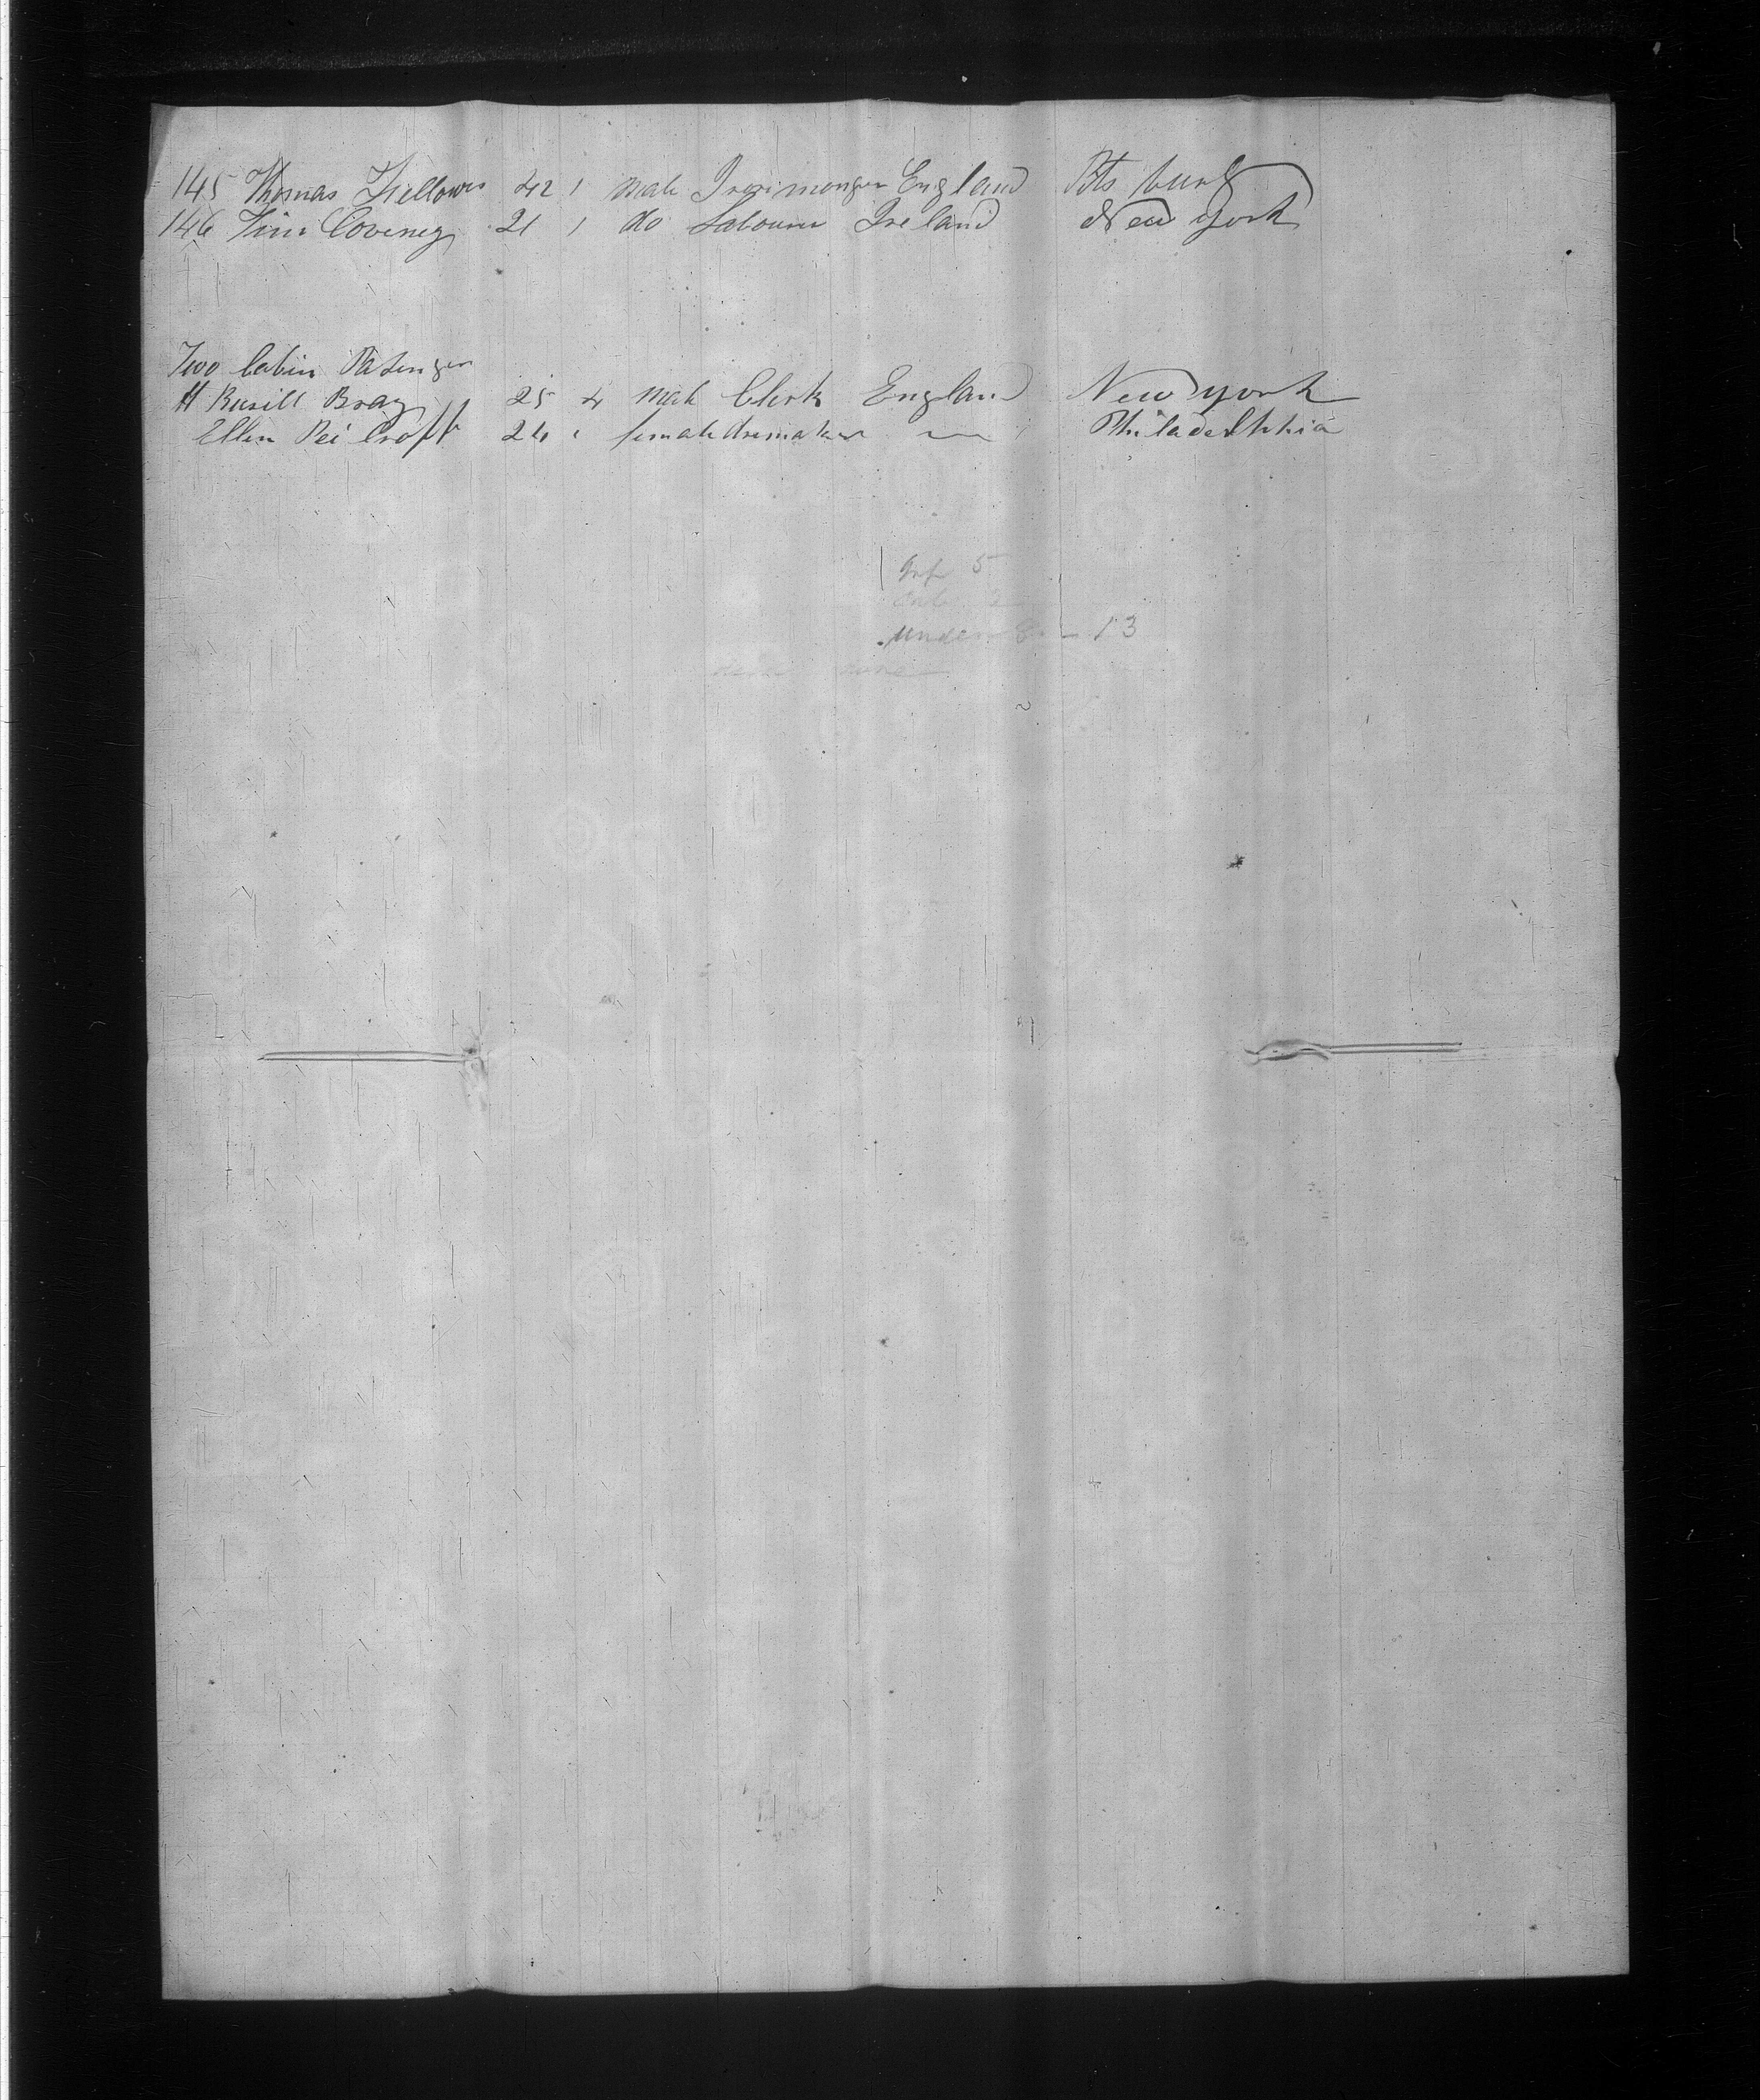 145 Thomas Fiellows 42 , male Ironmonger England Pitsburg
146 Tim Coveney 21 , do Labourer Ireland New York
Two Cabin Pasenger
H Rusill Bray 25 4 male Clerk England New York
Ellen Rei Croft 24 , female dresmaker Philadelphia
Inf 5
under 8 - 13